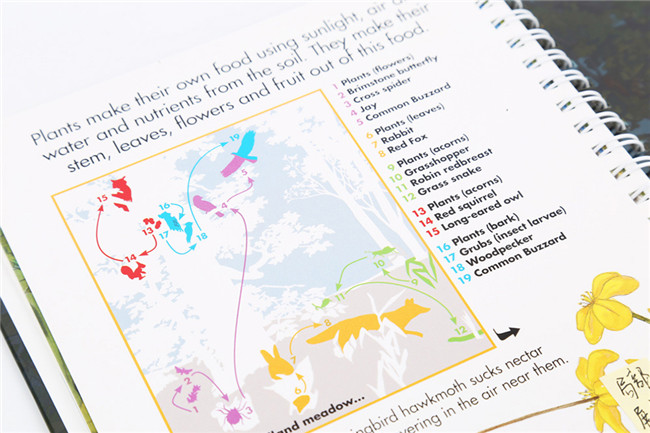 Plants make their own food using sunlight, air
water and nutrients from the soil. They make their
stem, leaves, flowers and fruit out of this food.
1 Plants (flowers)
2 Brimstone butterfly
3 Cross spider
4 Jay
5 Common Buzzard
6 Plants (leaves)
7 Rabbit
8 Red Fox
9 Plants (acorns)
10 Grasshopper
11 Robin redbreast
12 Grass snake
13 Plants (acorns)
14 Red squirrel
15 Long-eared owl
16 Plants (bark)
17 Grubs (insect larvae)
18 Woodpecker
19 Common Buzzard
19
15
16
5
4
13
17
18
14
10
9
11
8
7
12
2
6
1
3
land meadow...
hawkmoth sucks nectar
in the air near them.